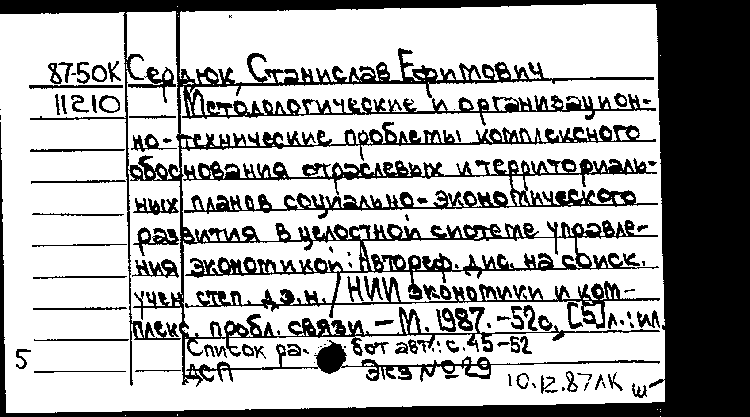 87-50К Сердюк, Станислав Ефимович.
11210 Методологические и организацион-
но-технические проблемы комплексного
обоснования отраслевых и территориаль-
ных планов социально-экономического
развития в целостной системе управле-
ния экономикой: Автореф. дис. на соиск.
учен. степ. д.э.н. / НИИ экономики и ком-
плекс. пробл. связи. – М. 1987. – 52с., [5]л.: ил.
Список ра- бот авт.: с. 45-52
5
ДСП Экз №29
10.12.87ЛК